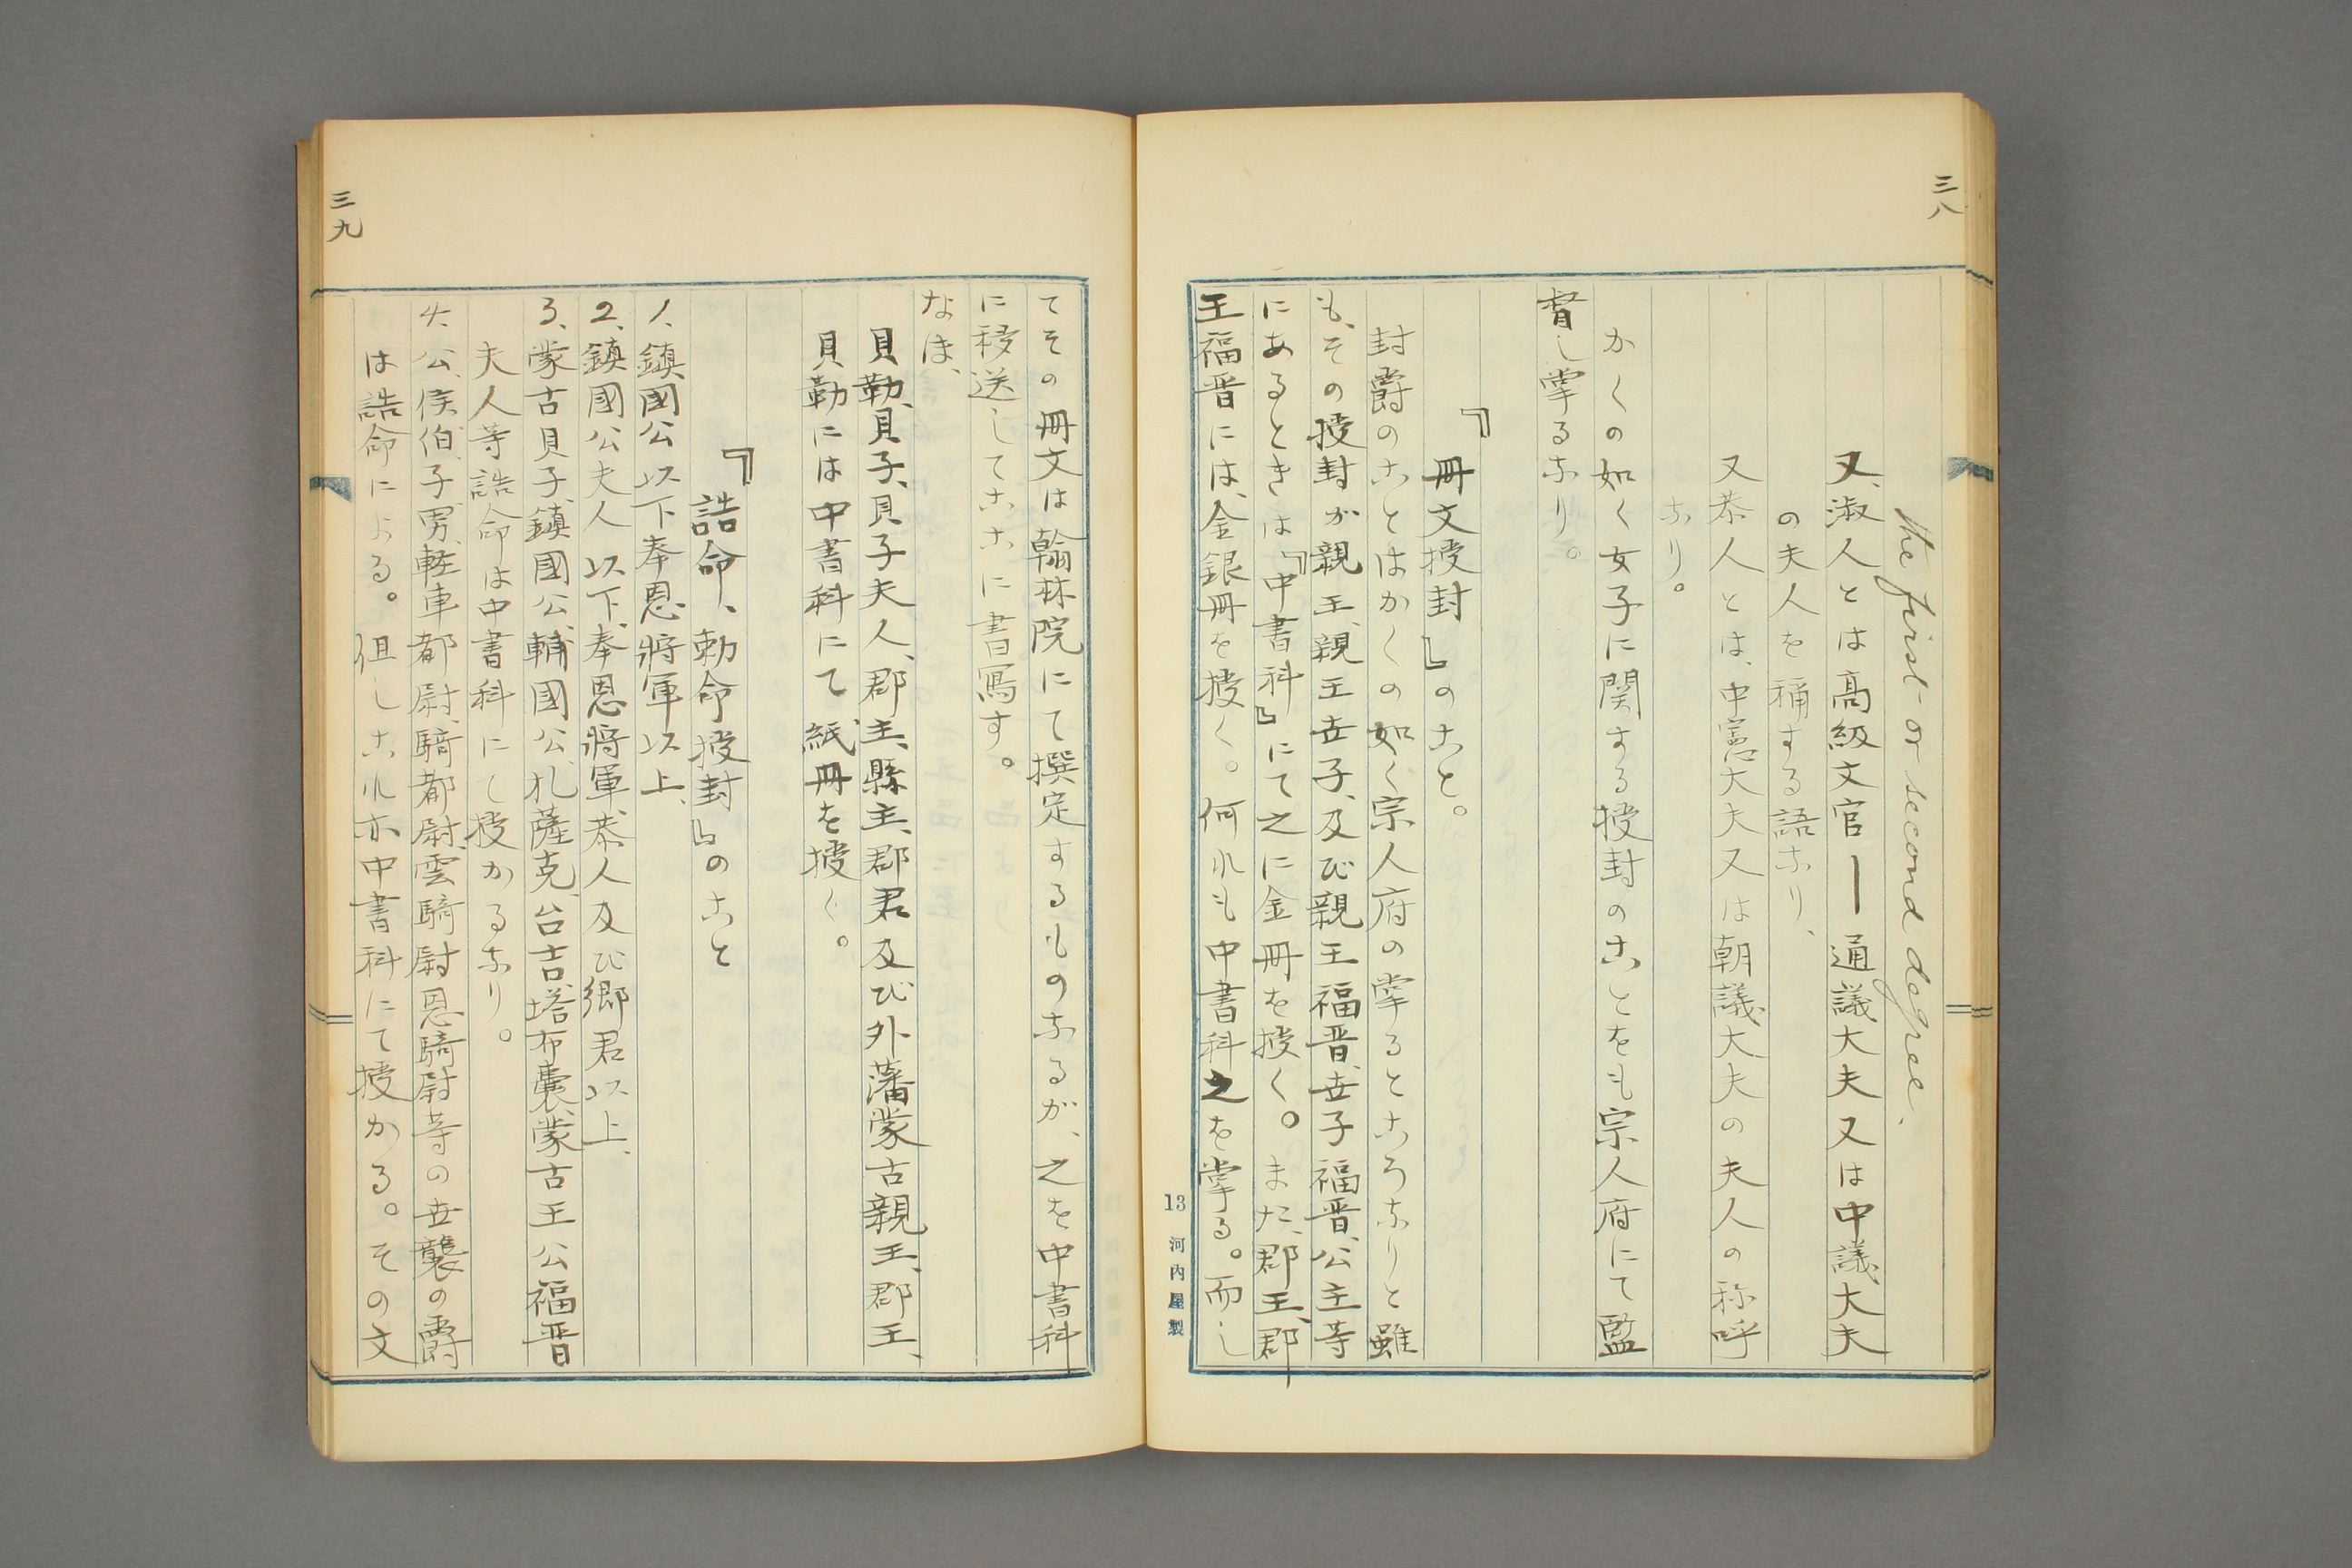 三八
the first or second degree.
又、淑人とは高級文官ー通議大夫又は中議大夫
の夫人を稱する語なり、
又恭人とは、中憲大夫又は朝議大夫の夫人の称呼
なり。
かくの如く女子に関する授封のことをも宗人府にて監
督し掌るなり。
『冊文授封』のこと。
封爵のことはかくの如く宗人府の掌るところなりと雖
も、その授封が親王、親王世子、及び親王福晋、世子福晋、公主等
にあるときは『中書科』にて之に金冊を授く。また、郡王、郡
王福晋には、金銀冊を授く。何れも中書科之を掌る。而し
13 河内屋製
三九
てその冊文は翰林院にて撰定するものなるが、之を中書科
に移送してここに書写す。
なほ、
貝勒、貝子、貝子夫人、郡主、縣主、郡君及び外藩蒙古親王、郡王、
貝勒には中書科にて紙冊を授く。
『誥命、勅命授封』のこと
1、鎮國公以下奉恩將軍以上、
2、鎮國公夫人以下、奉恩將軍、恭人及び郷君以上、
3、蒙古貝子、鎮國公、輔國公、札薩克、台吉、塔布嚢、蒙古王公福晋
夫人等誥命は中書科にて授かるなり。
4、公、侯、伯、子、男、軽車都尉、騎都尉、雲騎尉、恩騎尉等の世襲の爵
は誥命による。但しこれ亦中書科にて授かる。その文